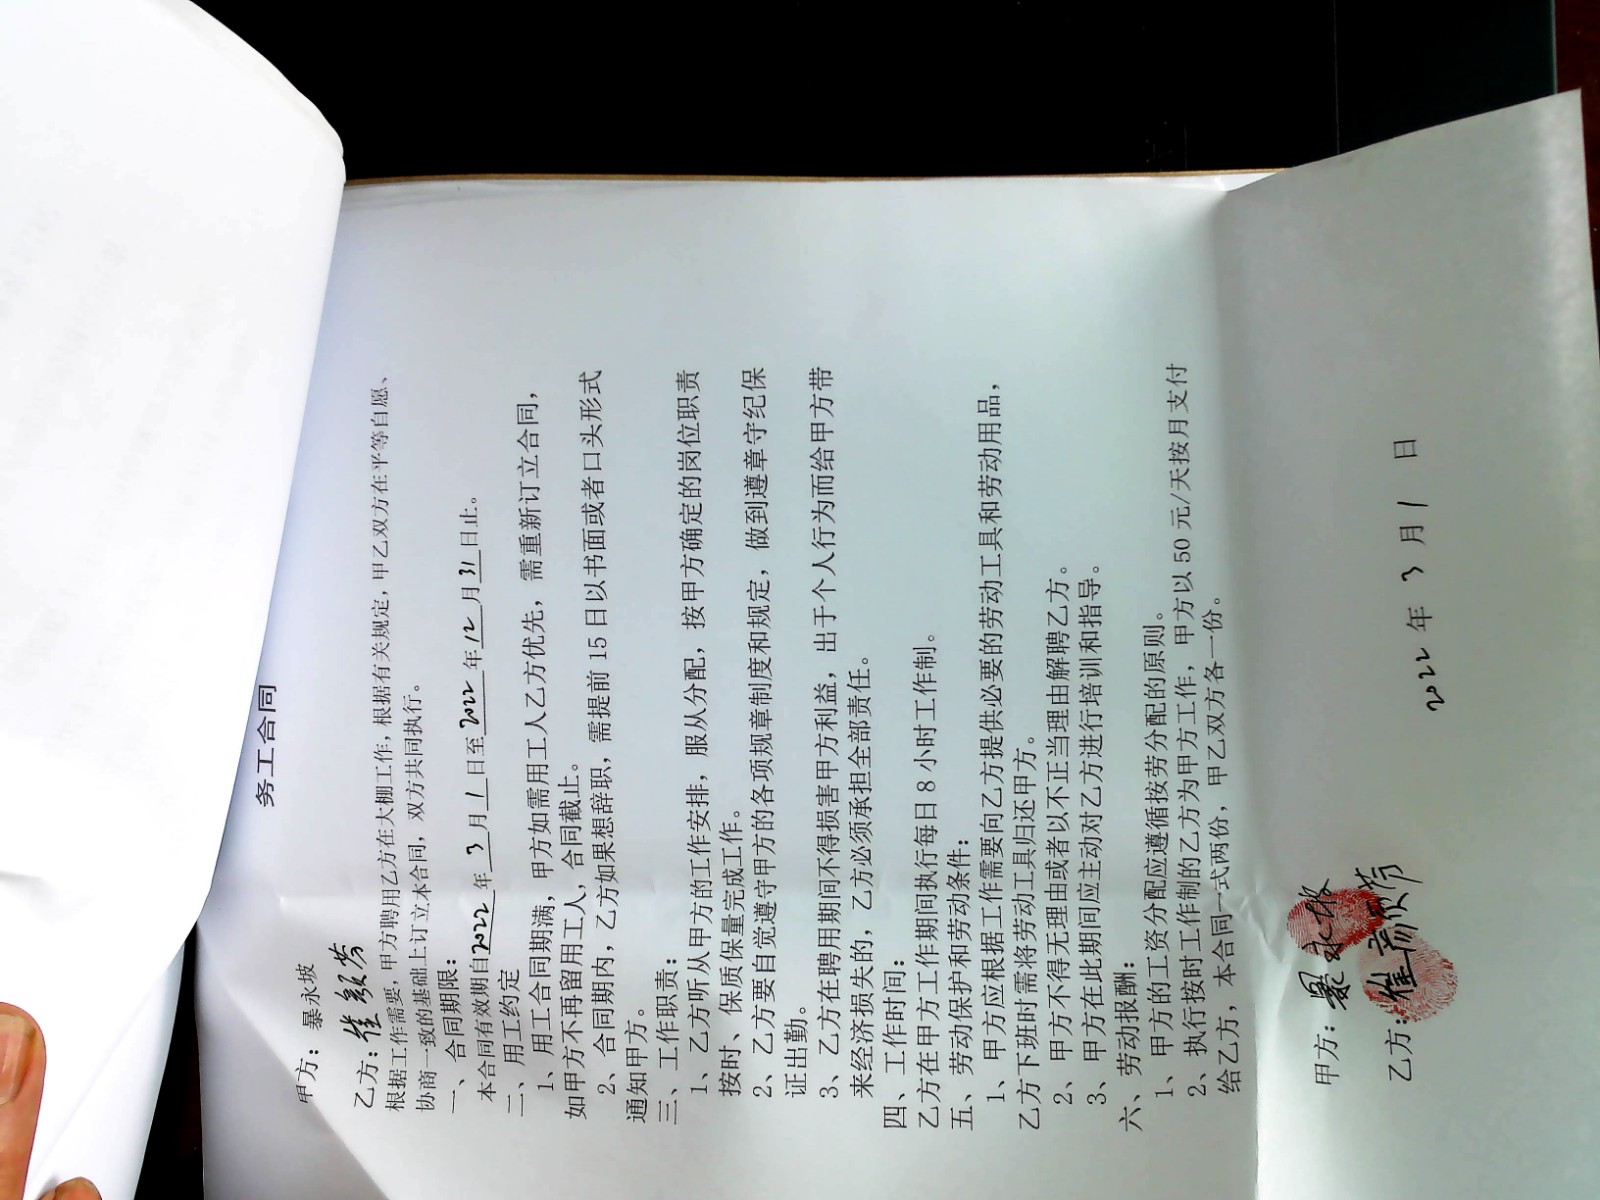 务工合同
甲方：暴永坡
乙方：崔颜芳
根据工作需要，甲方聘用乙方在大棚工作，根据有关规定，甲乙双方在平等自愿、
协商一致的基础上订立本合同，双方共同执行。
一、合同期限：
本合同有效期自2022年3月1日至2022年12月31日止。
二、用工约定
1、用工合同期满，甲方如需用工人乙方优先，需重新订立合同，
如甲方不再留用工人，合同截止。
2、合同期内，乙方如果想辞职，需提前 15 日以书面或者口头形式
通知甲方。
三、工作职责：
1、乙方听从甲方的工作安排，服从分配，按甲方确定的岗位职责
按时、保质保量完成工作。
2、乙方要自觉遵守甲方的各项规章制度和规定，做到遵章守纪保
证出勤。
3、乙方在聘用期间不得损害甲方利益，出于个人行为而给甲方带
来经济损失的，乙方必须承担全部责任。
四、工作时间：
乙方在甲方工作期间执行每日 8 小时工作制。
五、劳动保护和劳动条件：
1、甲方应根据工作需要向乙方提供必要的劳动工具和劳动用品，
乙方下班时需将劳动工具归还甲方。
2、甲方不得无理由或者以不正当理由解聘乙方。
3、甲方在此期间应主动对乙方进行培训和指导。
六、劳动报酬：
1、甲方的工资分配应遵循按劳分配的原则。
2、执行按时工作制的乙方为甲方工作，甲方以 50 元/天按月支付
给乙方，本合同一式两份，甲乙双方各一份。
甲方：暴永坡
乙方：崔颜芳
2022年3月1日